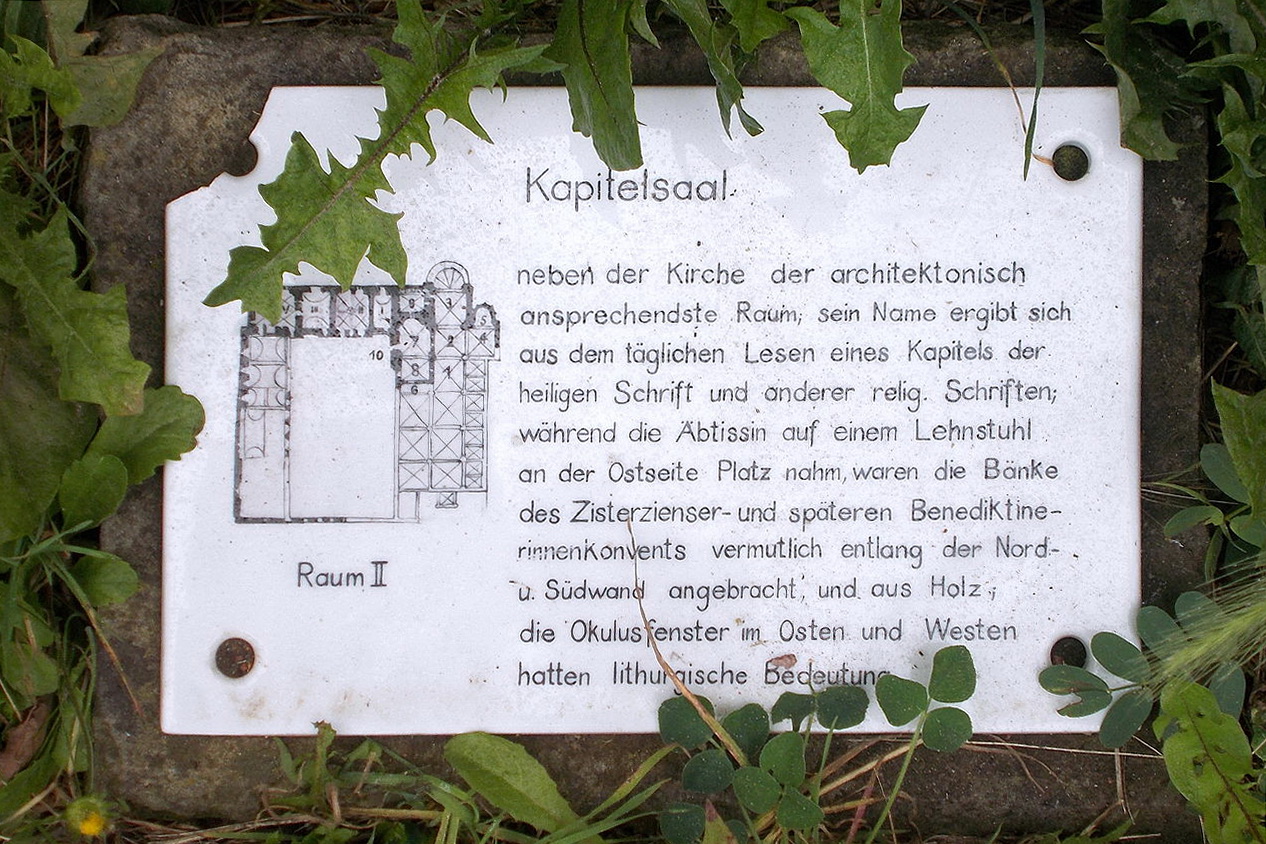 Kapitelsaal
neben der Kirche der architektonisch
ansprechendste Raum; sein Name ergibt sich
aus dem täglichen Lesen eines Kapitels der
heiligen Schrift und anderer relig. Schriften;
während die Äbtissin auf einem Lehnstuhl
an der Ostseite Platz nahm, waren die Bänke
des Zisterzienser- und späteren Benediktine-
rinnenkonvents vermutlich entlang der Nord-
u. Südwand angebracht, und aus Holz;
die Okulusfenster im Osten und Westen
hatten lithurgische Bedeutung
3
5
9
7
4
2
10
8
1
6
Raum II